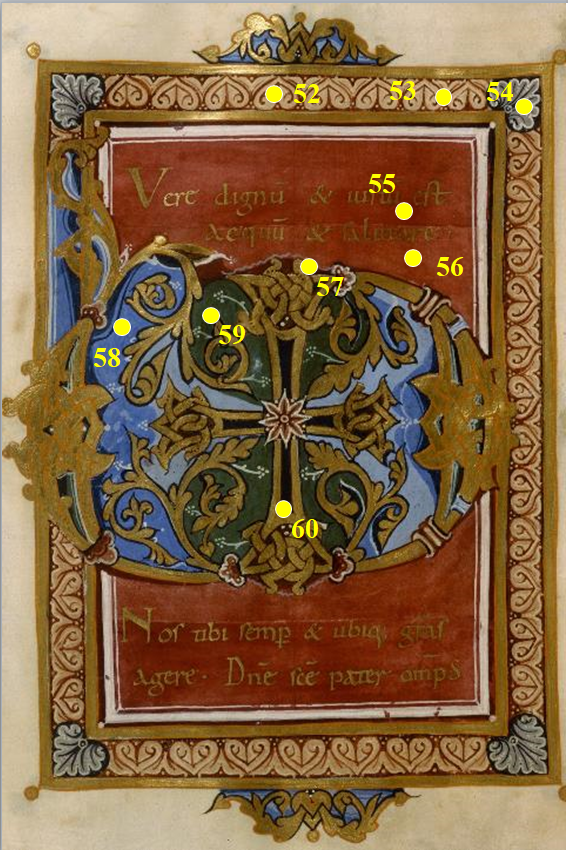 52
53
54
Vere dignū & iustū est
55
æquū & salutare·
56
57
58
59
60
Nos tibi semp̄ & ubiq; gr̄as
agere· Dn̄e sc̄e pater omp̄s